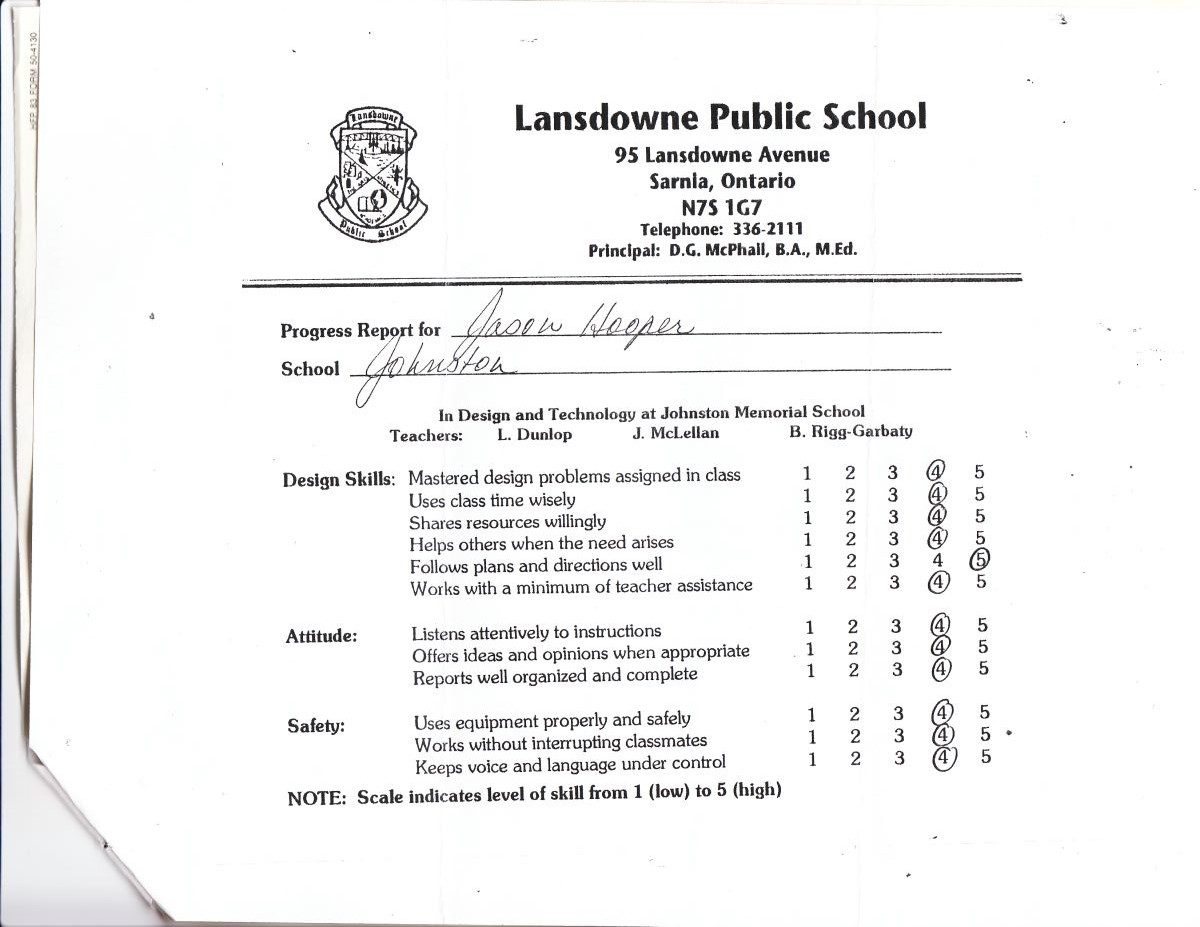 HFP 83 FORM 50-4130
3
Lansdowne
Public School
Lansdowne Public School
95 Lansdowne Avenue
Sarnia, Ontario
N7S 1G7
Telephone: 336-2111
Principal: D.G. McPhail, B.A., M.Ed.
Progress Report for Jason Hooper
School Johnston
In Design and Technology at Johnston Memorial School
Teachers: L. Dunlop J. McLellan B. Rigg-Garbaty
Design Skills: Mastered design problems assigned in class 1 2 3 4 5
Uses class time wisely 1 2 3 4 5
Shares resources willingly 1 2 3 4 5
Helps others when the need arises 1 2 3 4 5
Follows plans and directions well 1 2 3 4 5
Works with a minimum of teacher assistance 1 2 3 4 5
Attitude: Listens attentively to instructions 1 2 3 4 5
Offers ideas and opinions when appropriate 1 2 3 4 5
Reports well organized and complete 1 2 3 4 5
Safety: Uses equipment properly and safely 1 2 3 4 5
Works without interrupting classmates 1 2 3 4 5
Keeps voice and language under control 1 2 3 4 5
NOTE: Scale indicates level of skill from 1 (low) to 5 (high)